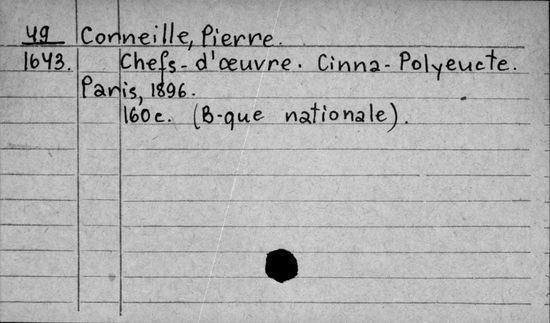 49 Corneille, Pierre.
1643. Chefs-d'œuvre. Cinna-Polyeucte.
Paris, 1896.
160c. (B-que nationale).